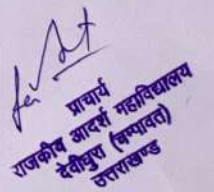 प्राचार्य
राजकीय आदर्श महाविद्यालय
देवीधुरा (चम्पावत)
उत्तराखण्ड